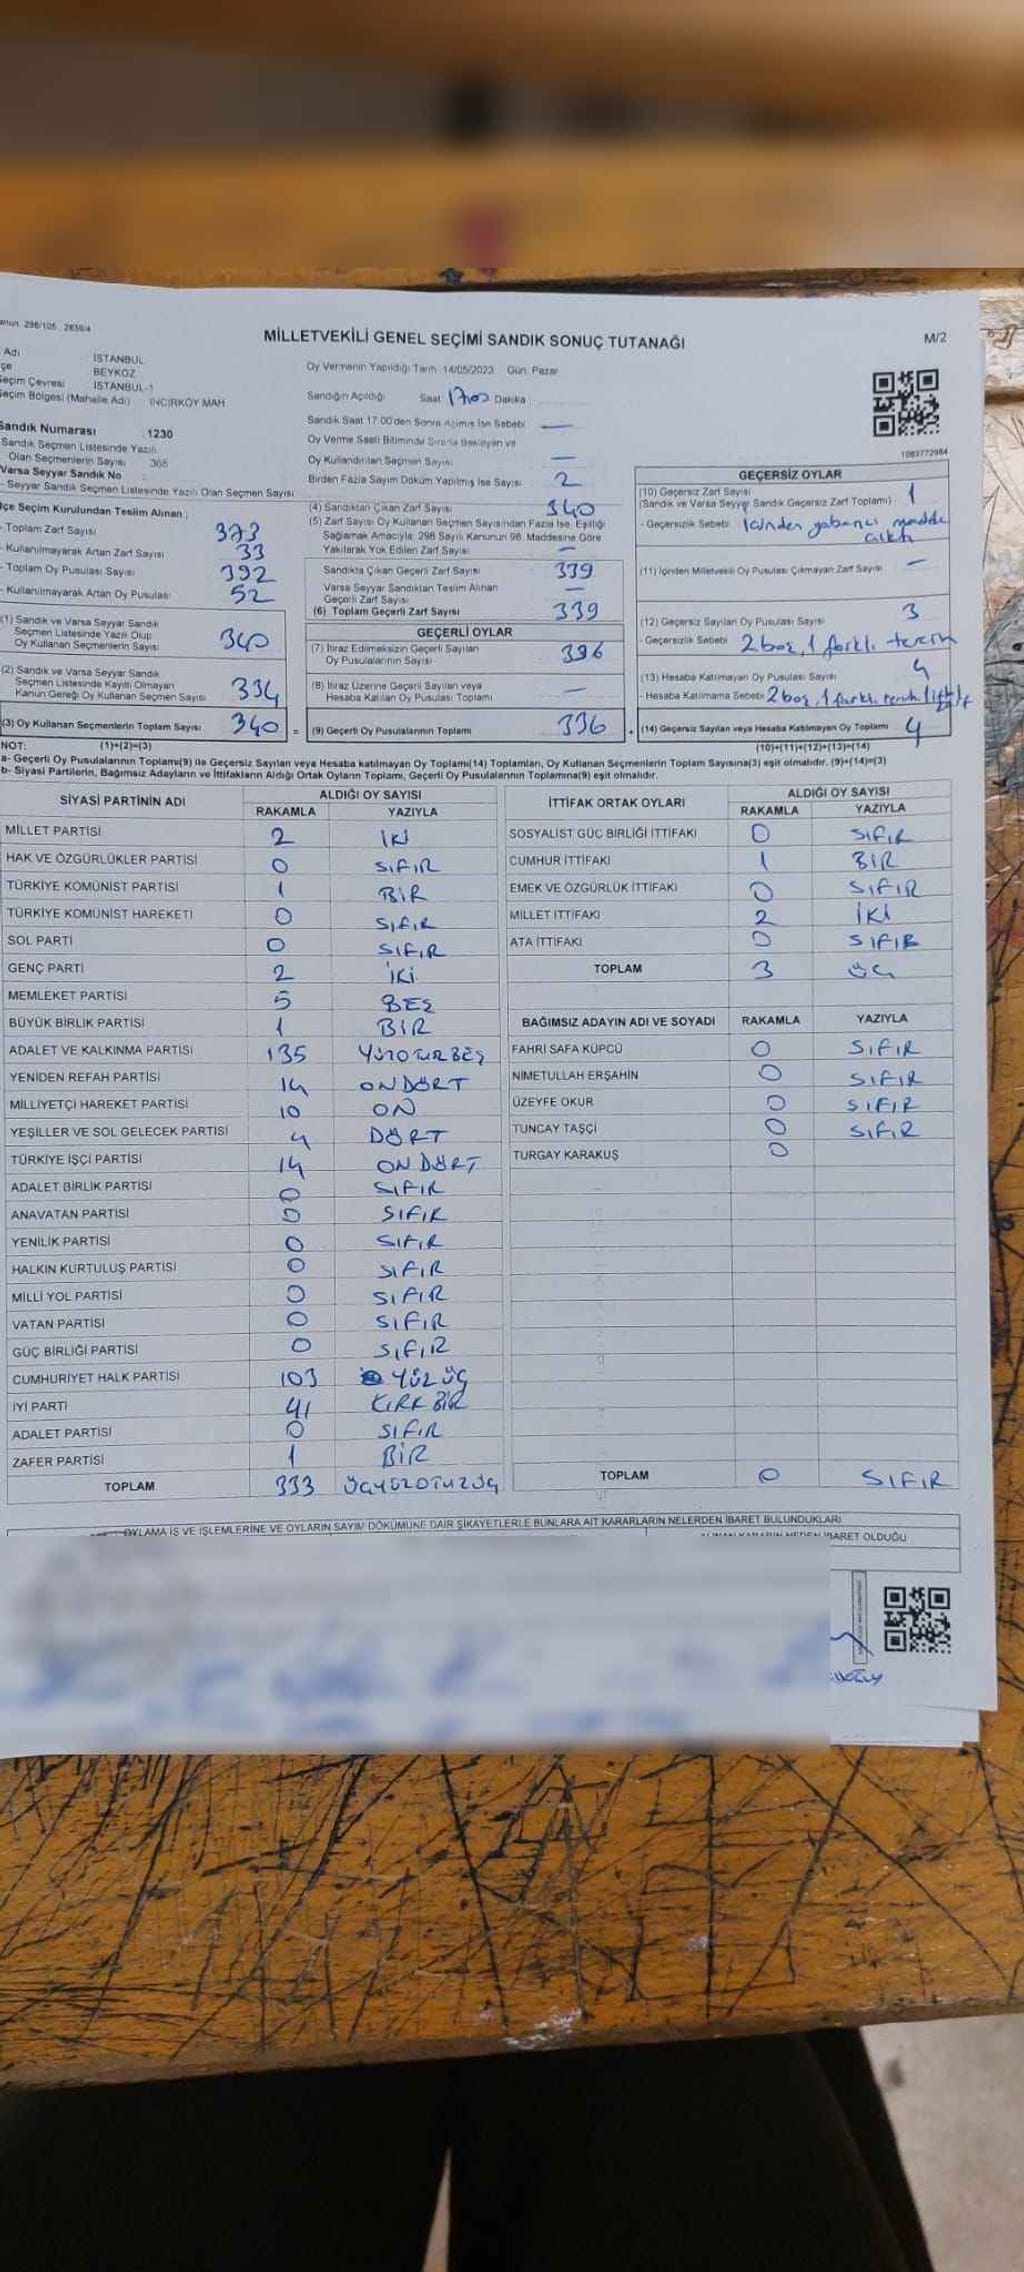 anun: 298/105 , 2839/4
MİLLETVEKİLİ GENEL SEÇİMİ SANDIK SONUÇ TUTANAĞI
M/2
Adı İSTANBUL
çe BEYKOZ
Seçim Çevresi İSTANBUL-1
Seçim Bölgesi (Mahalle Adı) İNCİRKÖY MAH
Sandık Numarası 1230
Sandık Seçmen Listesinde Yazılı
Olan Seçmenlerin Sayısı 368
Varsa Seyyar Sandık No
- Seyyar Sandık Seçmen Listesinde Yazılı Olan Seçmen Sayısı
Oy Vermenin Yapıldığı Tarih: 14/05/2023 Gün: Pazar
Sandığın Açıldığı Saat 17:00 Dakika
Sandık Saat 17.00'den Sonra Açılmış İse Sebebi —
Oy Verme Saati Bitiminde Sırada Bekleyen ve
Oy Kullandırılan Seçmen Sayısı —
Birden Fazla Sayım Döküm Yapılmış İse Sayısı 2
1083772984
İlçe Seçim Kurulundan Teslim Alınan ;
- Toplam Zarf Sayısı 373
- Kullanılmayarak Artan Zarf Sayısı 33
- Toplam Oy Pusulası Sayısı 392
- Kullanılmayarak Artan Oy Pusulası 52
(1) Sandık ve Varsa Seyyar Sandık
Seçmen Listesinde Yazılı Olup
Oy Kullanan Seçmenlerin Sayısı 340
(2) Sandık ve Varsa Seyyar Sandık
Seçmen Listesinde Kayıtlı Olmayan
Kanun Gereği Oy Kullanan Seçmen Sayısı 334
(3) Oy Kullanan Seçmenlerin Toplam Sayısı 340 =
(4) Sandıktan Çıkan Zarf Sayısı 340
(5) Zarf Sayısı Oy Kullanan Seçmen Sayısından Fazla İse, Eşitliği
Sağlamak Amacıyla; 298 Sayılı Kanunun 98. Maddesine Göre
Yakılarak Yok Edilen Zarf Sayısı —
Sandıkta Çıkan Geçerli Zarf Sayısı 339
Varsa Seyyar Sandıktan Teslim Alınan
Geçerli Zarf Sayısı —
(6) Toplam Geçerli Zarf Sayısı 339
GEÇERLİ OYLAR
(7) İtiraz Edilmeksizin Geçerli Sayılan
Oy Pusulalarının Sayısı 336
(8) İtiraz Üzerine Geçerli Sayılan veya
Hesaba Katılan Oy Pusulası Toplamı —
(9) Geçerli Oy Pusulalarının Toplamı 336 +
GEÇERSİZ OYLAR
(10) Geçersiz Zarf Sayısı
(Sandık ve Varsa Seyyar Sandık Geçersiz Zarf Toplamı) : 1
- Geçersizlik Sebebi İçinden yabancı madde
çıktı
(11) İçinden Milletvekili Oy Pusulası Çıkmayan Zarf Sayısı —
(12) Geçersiz Sayılan Oy Pusulası Sayısı 3
- Geçersizlik Sebebi 2 boş, 1 farklı tercih
(13) Hesaba Katılmayan Oy Pusulası Sayısı 4
- Hesaba Katılmama Sebebi 2 boş, 1 farklı tercih 1
(14) Geçersiz Sayılan veya Hesaba Katılmayan Oy Toplamı 4
NOT: (1)+(2)=(3) (10)+(11)+(12)+(13)=(14)
a- Geçerli Oy Pusulalarının Toplamı(9) ile Geçersiz Sayılan veya Hesaba Katılmayan Oy Toplamı(14) Toplamları, Oy Kullanan Seçmenlerin Toplam Sayısına(3) eşit olmalıdır. (9)+(14)=(3)
b- Siyasi Partilerin, Bağımsız Adayların ve İttifakların Aldığı Ortak Oyların Toplamı, Geçerli Oy Pusulalarının Toplamına(9) eşit olmalıdır.
SİYASİ PARTİNİN ADI ALDIĞI OY SAYISI
RAKAMLA YAZIYLA
MİLLET PARTİSİ 2 İKİ
HAK VE ÖZGÜRLÜKLER PARTİSİ 0 SIFIR
TÜRKİYE KOMÜNİST PARTİSİ 1 BİR
TÜRKİYE KOMÜNİST HAREKETİ 0 SIFIR
SOL PARTİ 0 SIFIR
GENÇ PARTİ 2 İKİ
MEMLEKET PARTİSİ 5 BEŞ
BÜYÜK BİRLİK PARTİSİ 1 BİR
ADALET VE KALKINMA PARTİSİ 135 YÜZOTUZBEŞ
YENİDEN REFAH PARTİSİ 14 ONDÖRT
MİLLİYETÇİ HAREKET PARTİSİ 10 ON
YEŞİLLER VE SOL GELECEK PARTİSİ 4 DÖRT
TÜRKİYE İŞÇİ PARTİSİ 14 ONDÖRT
ADALET BİRLİK PARTİSİ 0 SIFIR
ANAVATAN PARTİSİ 0 SIFIR
YENİLİK PARTİSİ 0 SIFIR
HALKIN KURTULUŞ PARTİSİ 0 SIFIR
MİLLİ YOL PARTİSİ 0 SIFIR
VATAN PARTİSİ 0 SIFIR
GÜÇ BİRLİĞİ PARTİSİ 0 SIFIR
CUMHURİYET HALK PARTİSİ 103 YÜZÜÇ
İYİ PARTİ 41 KIRKBİR
ADALET PARTİSİ 0 SIFIR
ZAFER PARTİSİ 1 BİR
TOPLAM 333 ÜÇYÜZOTUZÜÇ
İTTİFAK ORTAK OYLARI ALDIĞI OY SAYISI
RAKAMLA YAZIYLA
SOSYALİST GÜÇ BİRLİĞİ İTTİFAKI 0 SIFIR
CUMHUR İTTİFAKI 1 BİR
EMEK VE ÖZGÜRLÜK İTTİFAKI 0 SIFIR
MİLLET İTTİFAKI 2 İKİ
ATA İTTİFAKI 0 SIFIR
TOPLAM 3 ÜÇ
BAĞIMSIZ ADAYIN ADI VE SOYADI RAKAMLA YAZIYLA
FAHRİ SAFA KÜPCÜ 0 SIFIR
NİMETULLAH ERŞAHİN 0 SIFIR
ÜZEYFE OKUR 0 SIFIR
TUNCAY TAŞÇİ 0 SIFIR
TURGAY KARAKUŞ 0
TOPLAM 0 SIFIR
OYLAMA İŞ VE İŞLEMLERİNE VE OYLARIN SAYIM DÖKÜMÜNE DAİR ŞİKAYETLERLE BUNLARA AİT KARARLARIN NELERDEN İBARET BULUNDUKLARI
ALINAN KARARIN NEDEN İBARET OLDUĞU